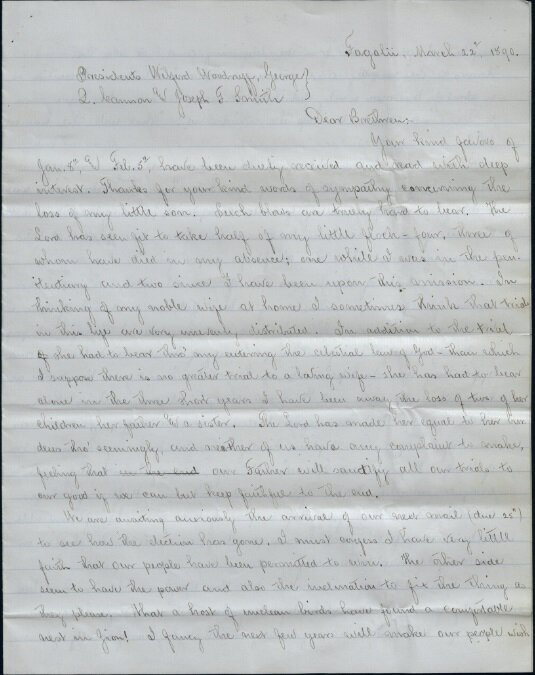 Fagalii, March 22nd, 1890.
Presidents Wilford Woodruff, George
Q. Cannon & Joseph F. Smith
Dear Brethren:
Your kind favors of
Jan. 8th, & Feb. 5th, have been duly received and read with deep
interest. Thanks for your kind words of sympathy concerning the
loss of my little son. Such blows are truly hard to bear. The
Lord has seen fit to take half of my little flock – four, three of
whom have died in my absence; one while I was in the pen-
itentiary and two since I have been upon this mission. In
thinking of my noble wife at home I sometimes think that trials
in this life are very unevenly distributed. In addition to the trial
she had to bear thro' my entering the celestial law of God – than which
I suppose there is no greater trial to a loving wife – she has had to bear
alone in the three short years I have been away the loss of two of her
children, her father & a sister. The Lord has made her equal to her bur-
dens tho' seemingly, and neither of us have any complaint to make,
feeling that in the end our Father will sanctify all our trials to
our good if we can but keep faithful to the end.
We are awaiting anxiously the arrival of our next mail (due 25th)
to see how the election has gone. I must confess I have very little
faith that our people have been permitted to win. The other side
seem to have the power and also the inclination to fix the thing as
they please. What a host of unclean birds have found a comfortable
nest in Zion! I fancy the next few years will make our people wish